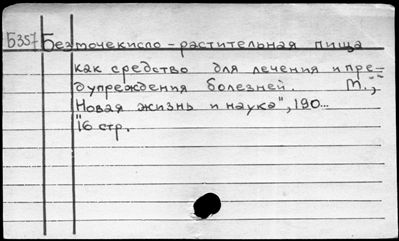 Б357 Безмочекисло-растительная пища
как средство для лечения и пре=
дупреждения болезней. М.,
"Новая жизнь и наука", 190...
16 стр.